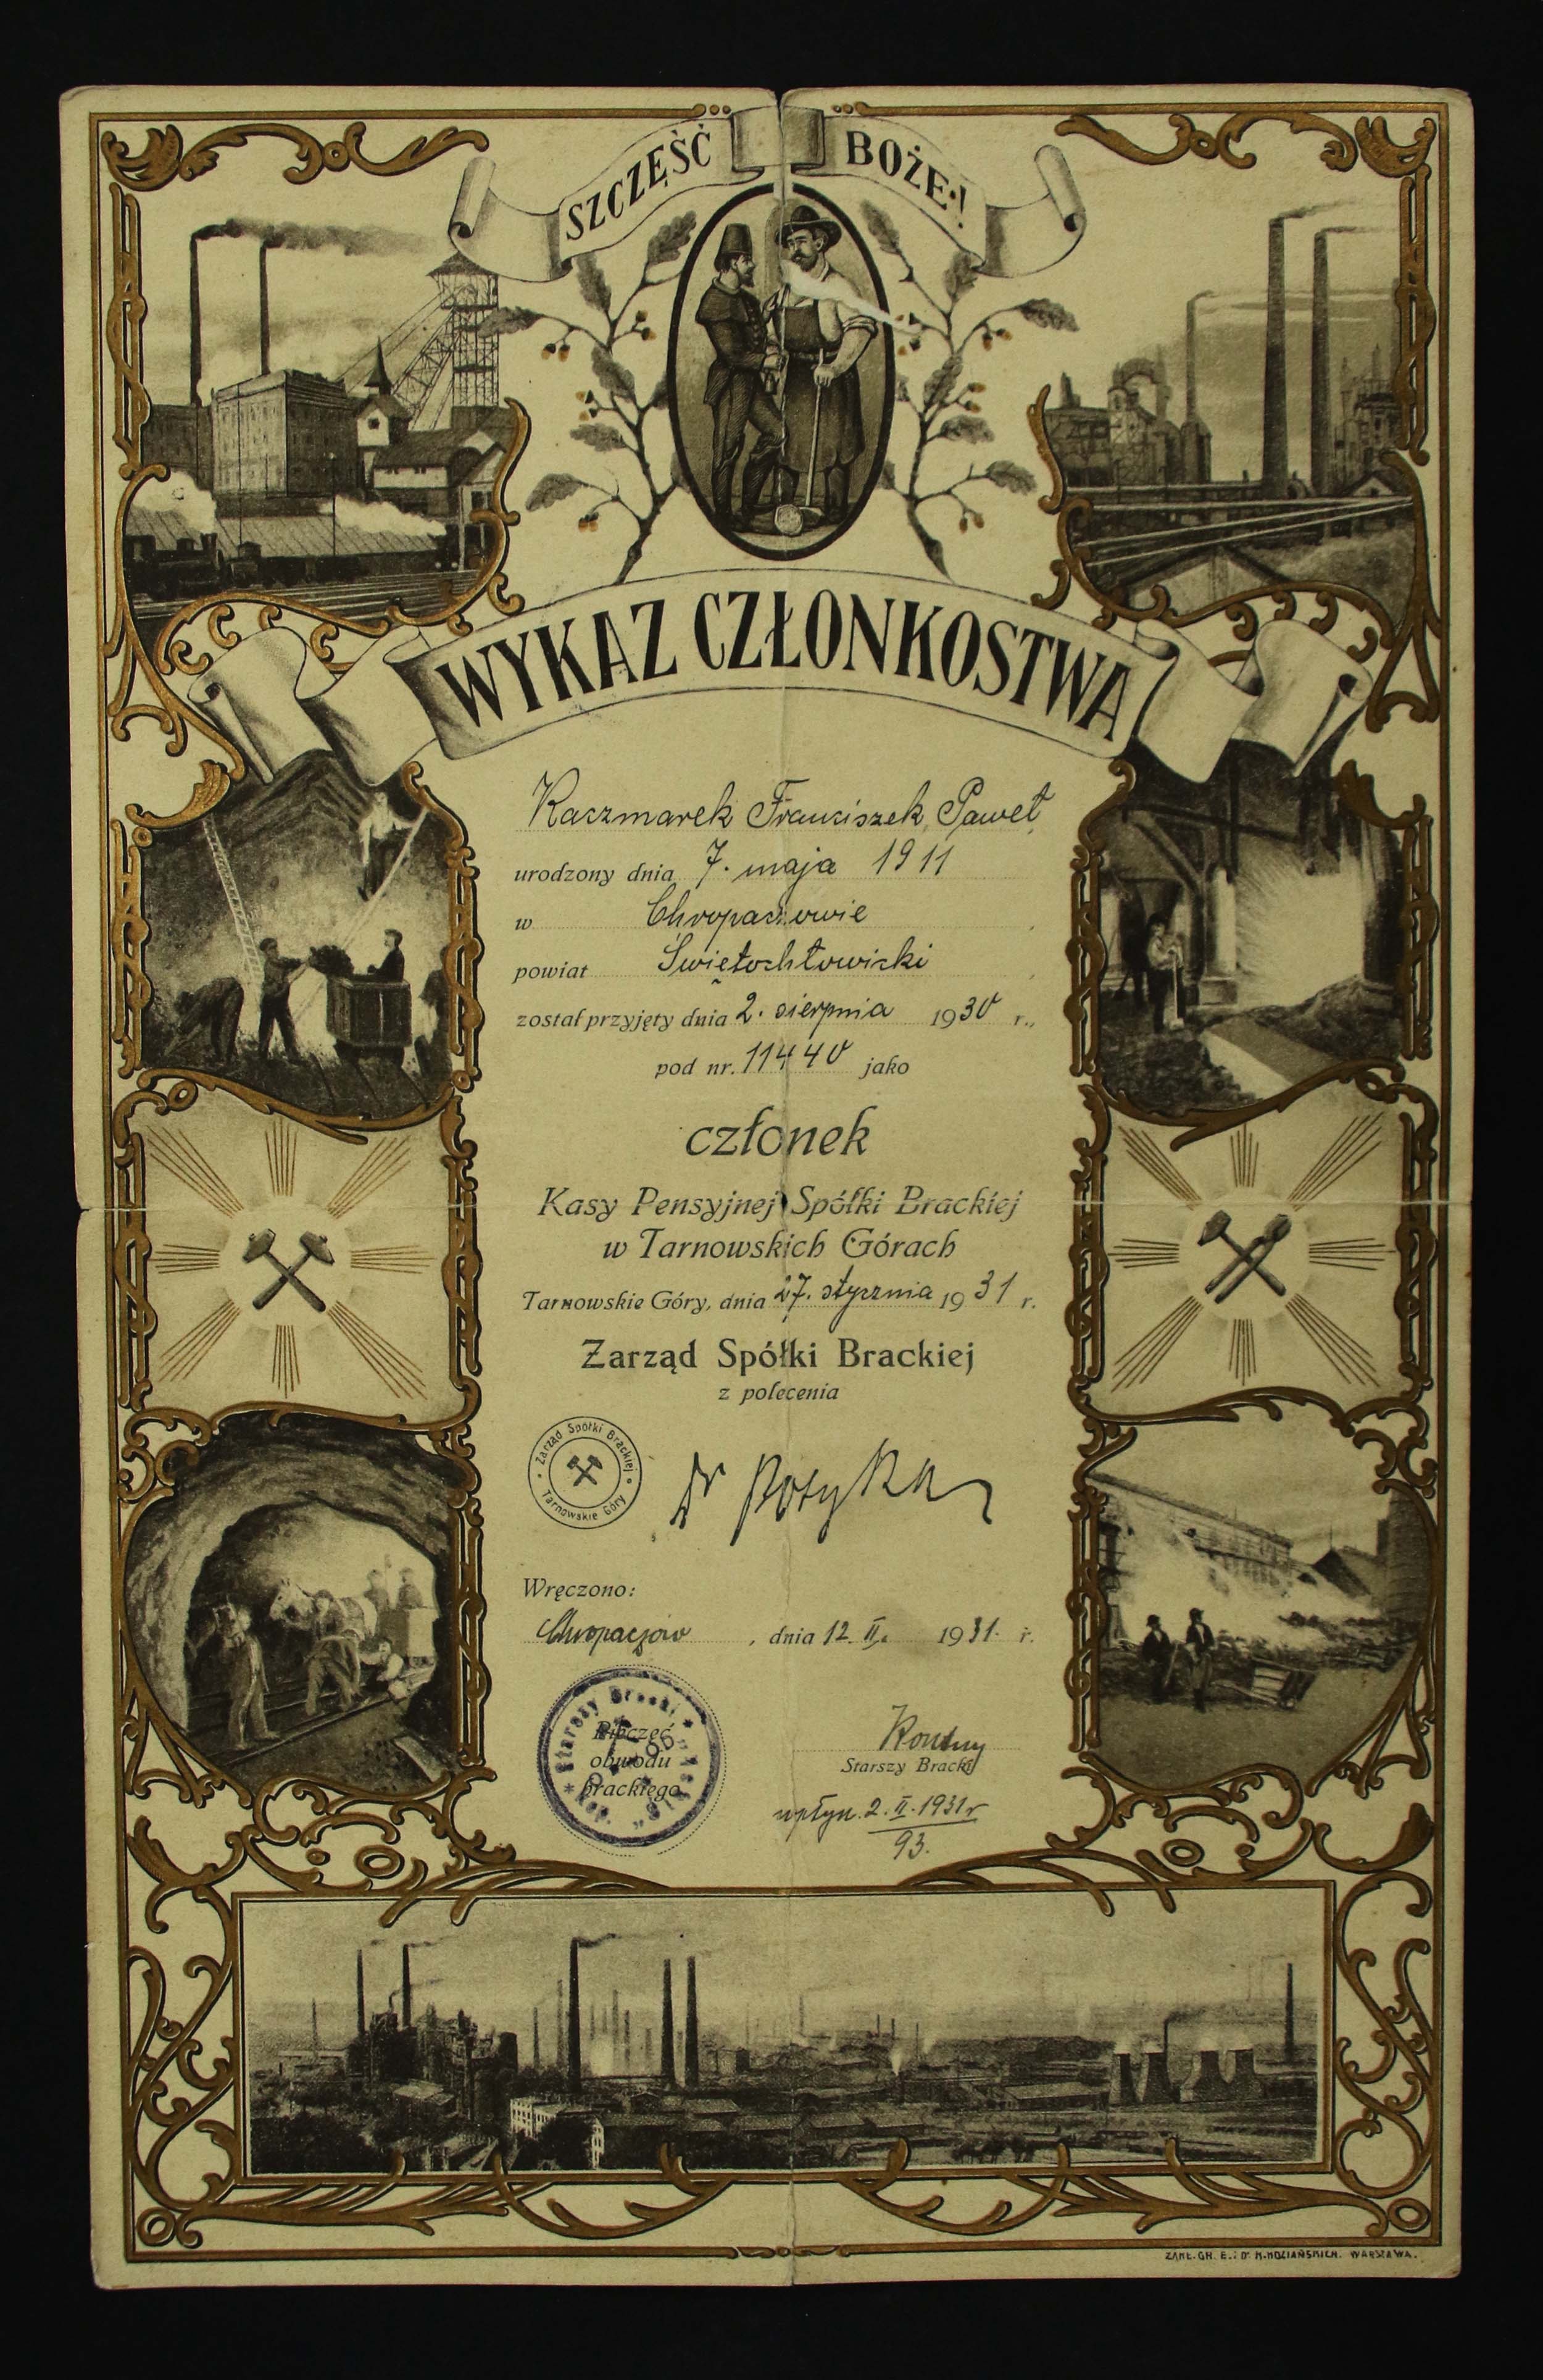 SZCZĘŚĆ BOŻE!
WYKAZ CZŁONKOSTWA
Kaczmarek Franciszek, Paweł
urodzony dnia 7. maja 1911
w Chropaczowie
powiat Świętochłowicki
został przyjęty dnia 2. sierpnia 1930 r.,
pod nr. 11440 jako
członek
Kasy Pensyjnej Spółki Brackiej
w Tarnowskich Górach
Tarnowskie Góry, dnia 27. stycznia 1931 r.
Zarząd Spółki Brackiej
z polecenia
Zarząd Spółki Brackiej
Tarnowskie Góry
Dr Potyka
Wręczono:
Chropaczów, dnia 12. II. 1931. r.
Starszy Bracki
Pieczęć
obwodu
brackiego
Starszy Bracki
wpłyn. 2. II. 1931 r
93.
WARSZAWA.